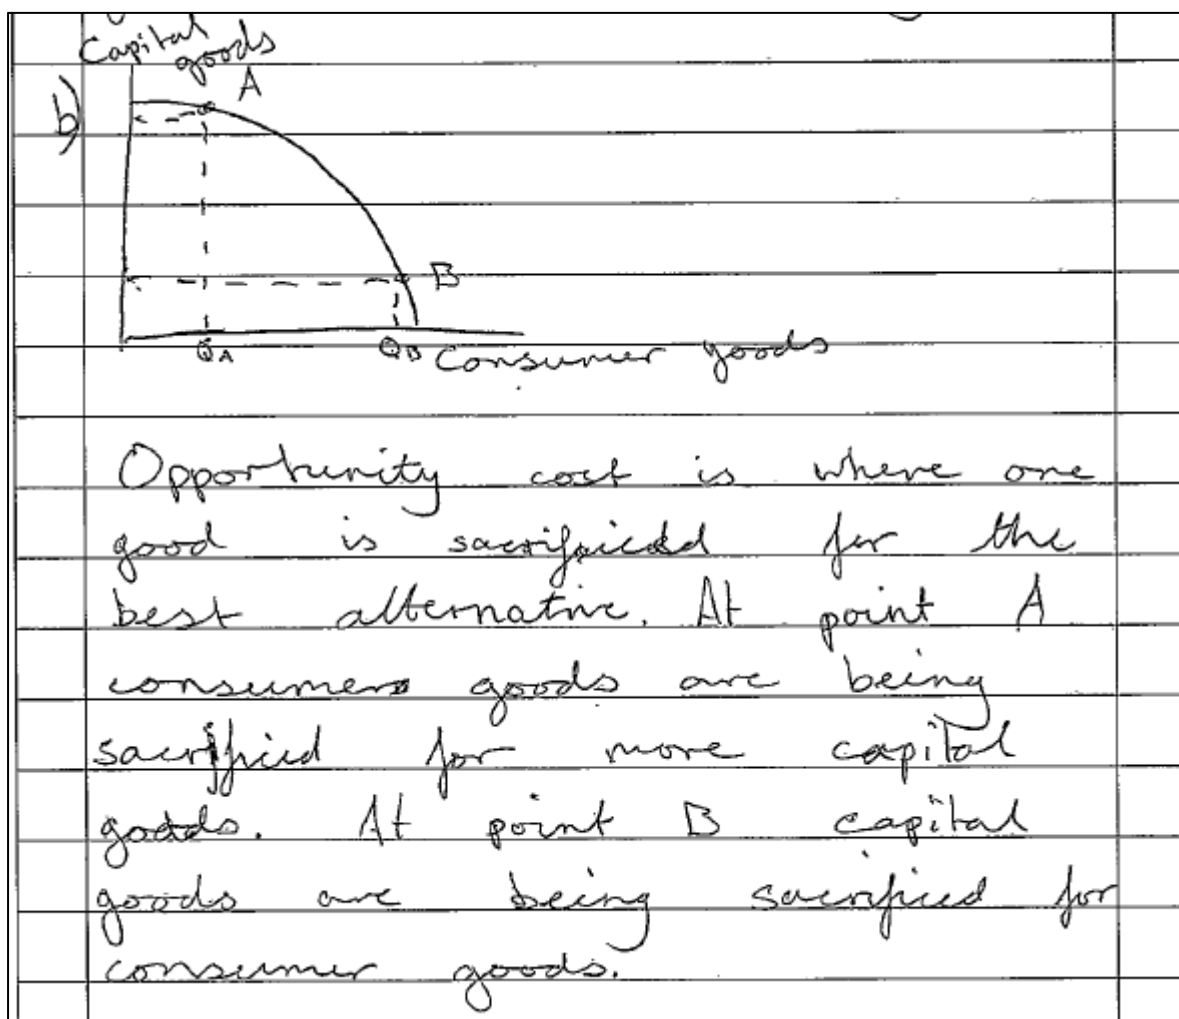 Capital
goods
b)
A
B
QA
QB
Consumer goods
Opportunity cost is where one
good is sacrificed for the
best alternative. At point A
consumer goods are being
sacrificed for more capital
goods. At point B capital
goods are being sacrificed for
consumer goods.